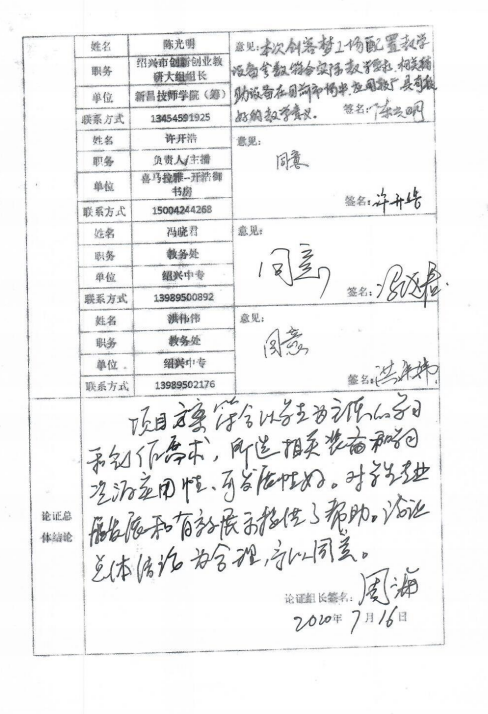 姓名 陈光明 意见:本次创客梦工场配置教学
职务 绍兴市创新创业教研大组组长 设备参数符合实际教学需求,相关辅
单位 新昌技师学院(筹) 助设备在目前市场中应用较广,具有较
联系方式 13454591925 好的教学意义。 签名:陈光明
姓名 许开浩 意见:
职务 负责人/主播 同意
单位 喜马拉雅--开浩御书房
联系方式 15004244268 签名:许开浩
姓名 冯晓君 意见:
职务 教务处 同意
单位 绍兴中专
联系方式 13989500892 签名:
姓名 洪伟伟 意见:
职务 教务处 同意
单位 绍兴中专
联系方式 13989502176 签名:洪伟伟
论证总体结论
项目方案符合以学生为主体的学习
和创作需求,所选相关装备和学习
资源实用性、可发展性好。对学生专业
发展和有效展示提供了帮助。论证
总体结论为合理,予以同意。
论证组长签名:周海
2020年7月16日